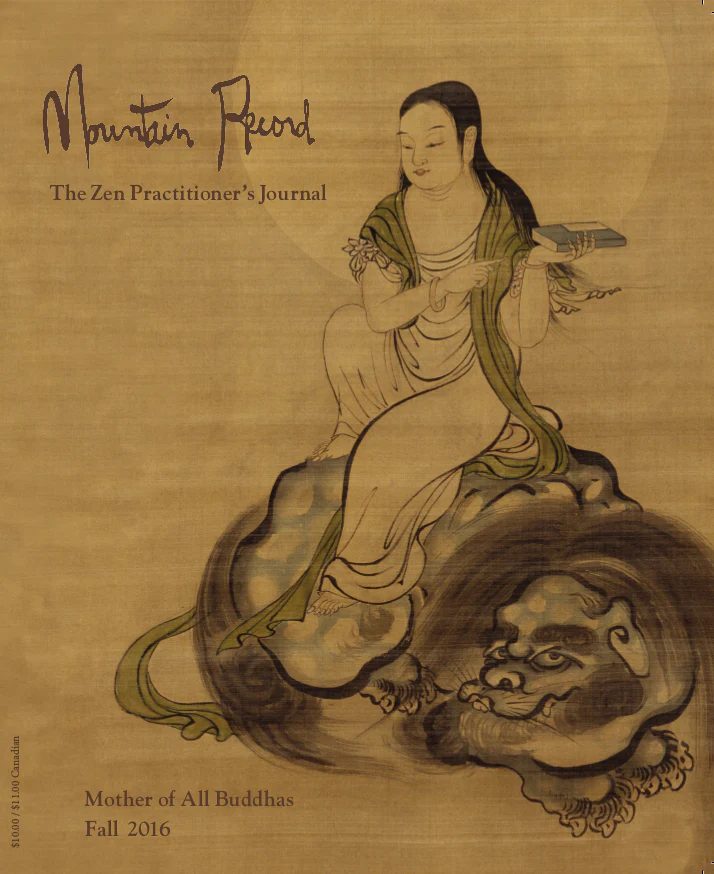 Mountain Record
The Zen Practitioner's Journal
Mother of All Buddhas
Fall 2016
$10.00 / $11.00 Canadian